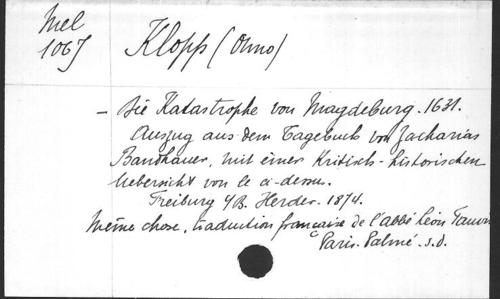 Mel
1067
Klopp (Onno)
- Die Katastrophe von Magdeburg. 1631.
Auszug aus dem Tagebuch von Zacharias
Bandhauer, mit einer Kritisch-historischen
Uebersicht von le ci-dessus.
Freiburg i/B. Herder. 1874.
Même chose, traduction française de l'abbé Léon
Paris. Palmé. s.d.